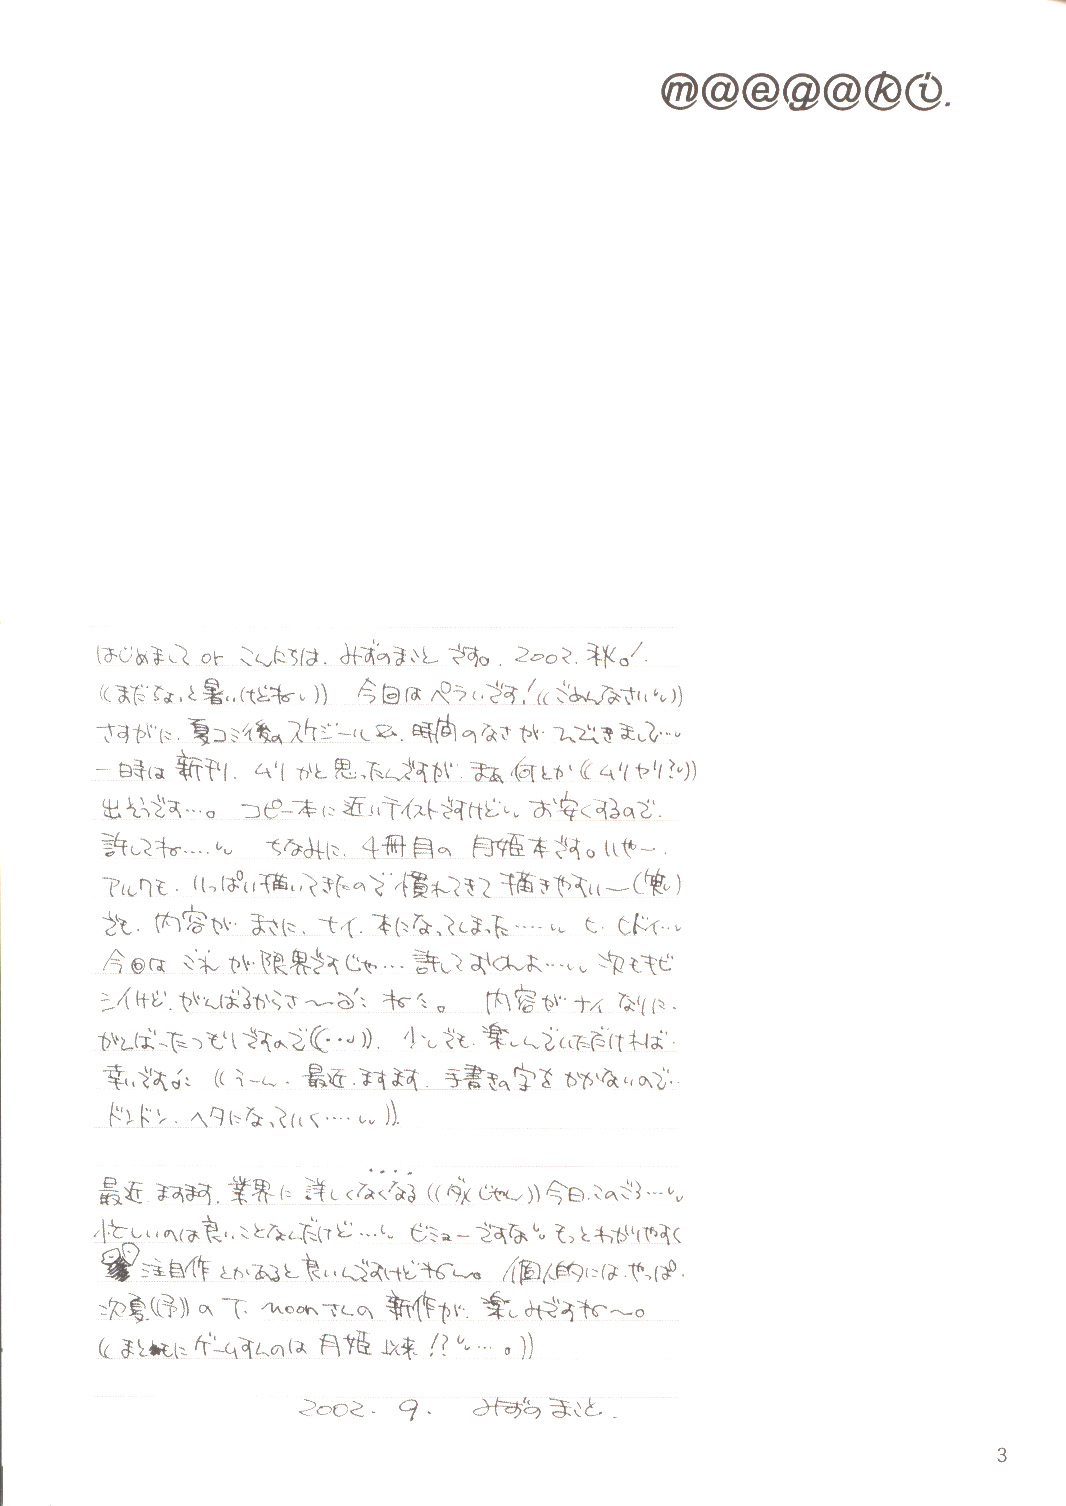 maegaki.
はじめまして or こんにちは. みずのまことです。2002. 秋。!
((まだちょっと暑いけどねい)) 今回はペラいです!((ごめんなさいい))
さすがに. 夏コミ後のスケジール&. 時間のなさが
一時は新刊. ムリかと思ったんですが. まぁ何とか((ムリヤリ?い))
出そうです…。 コピー本に近いテイストですけどいい お安くするので.
許してね……いい ちなみに. 4冊目の 月姫本です。いやー.
アルクも. いっぱい描いてきたので慣れてきて描きやすいー(笑い)
でも. 内容が. まさに. ナイ. 本になってしまった……いい ヒ. ヒドイ…い
今回は これが限界ですじゃ… 許しておくれよ…いい 次もキビ
シイけど. がんばるからさ〜 ね。 内容がナイなりに.
がんばったつもりですので((…い)). 少しでも 楽しんでいただければ.
幸いです ((うーん. 最近. ますます. 手書きの字をかかないので…
ドンドン. ヘタになっていく……いい)).
最近ますます. 業界に 詳しくなくなる((ダメじゃん))今日このごろ…いい
忙しいのは良いことなんだけど…いい ビミョーですないい もっとわかりやすく
注目作とかあると良いんですけどねー。 個人的には. やっぱ.
次夏((予))の T. moonさんの 新作が. 楽しみですね〜。
((まともにゲームすんのは 月姫 以来!?い…。))
2002. 9. みずのまこと.
3